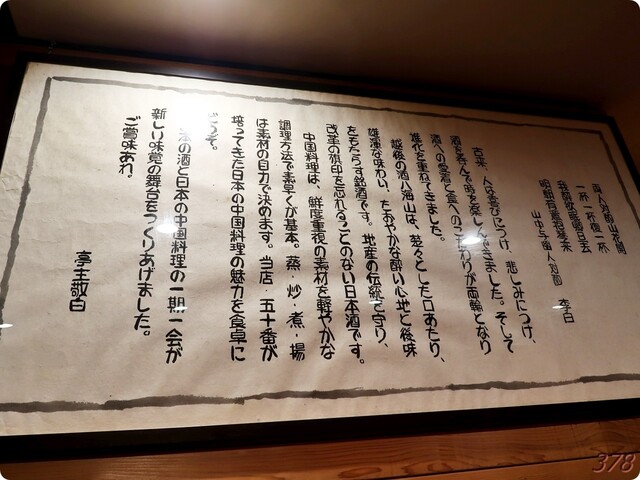 両人対酌山花開
一杯一杯復一杯
我酔欲眠卿且去
明朝有意抱琴来
山中与幽人対酌 李白
古来、人は喜びにつけ、悲しみにつけ、
酒を呑んで時を楽しんできました。そして
酒への愛着と食へのこだわりが両輪となり
進化を重ねてきました。
越後の酒八海山は、悠々とした口あたり、
雄渾な味わい、たおやかな酔い心地と後味
をもたらす銘酒です。地産の伝統を守り、
改革の旗印を忘れることのない日本酒です。
中国料理は、鮮度重視の素材を軽やかな
調理方法で素早くが基本。蒸・炒・煮・揚
は素材の目力で決めます。当店・五十番が
培ってきた日本の中国料理の魅力を食卓に
どうぞ。
の酒と日本の中国料理の一期一会が
新しい味覚の舞台をつくりあげました。
ご賞味あれ。
亭主敬白
378